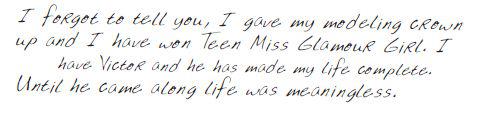 I forgot to tell you, I gave my modeling crown
up and I have won Teen Miss Glamour Girl. I
have Victor and he has made my life complete.
Until he came along life was meaningless.